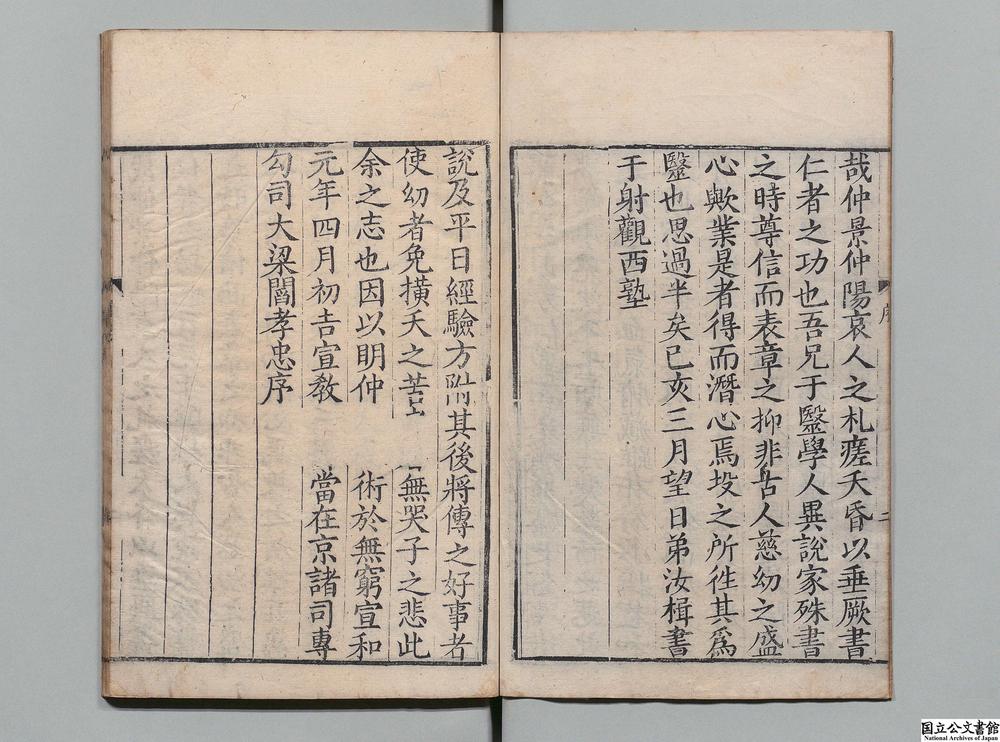 哉仲景仲陽哀人之札瘥夭昏以垂厥書
仁者之功也吾兄于毉學人異說家殊書
之時尊信而表章之抑非古人慈幼之盛
心歟業是者得而潛心焉投之所徃其爲
毉也思過半矣已亥三月望日弟汝楫書
于射觀西塾
序
二
說及平日經驗方附其後將傳之好事者
使幼者免橫夭之苦 無哭子之悲此
余之志也因以明仲 術於無窮宣和
元年四月初吉宣敎 當在京諸司專
勾司大梁閻孝忠序
国立公文書館
National Archives of Japan